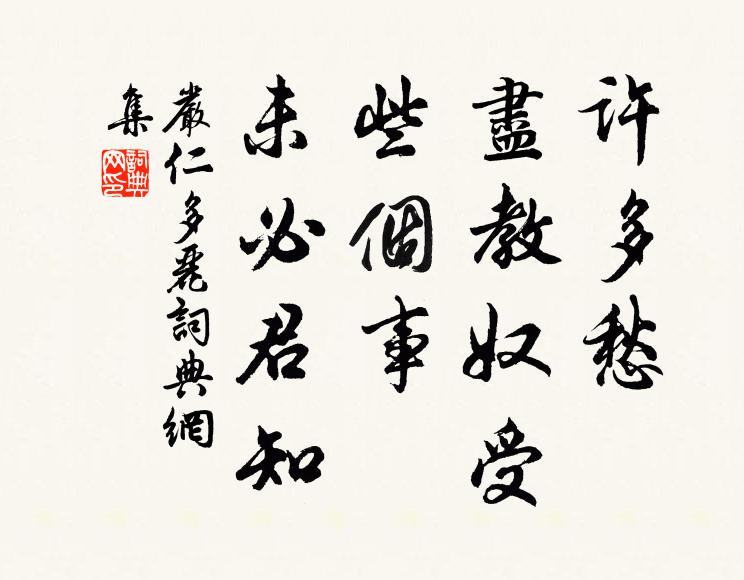 許多愁
盡教奴受
些個事
未必君知
嚴仁多麗詞典網
集
詞典
网印